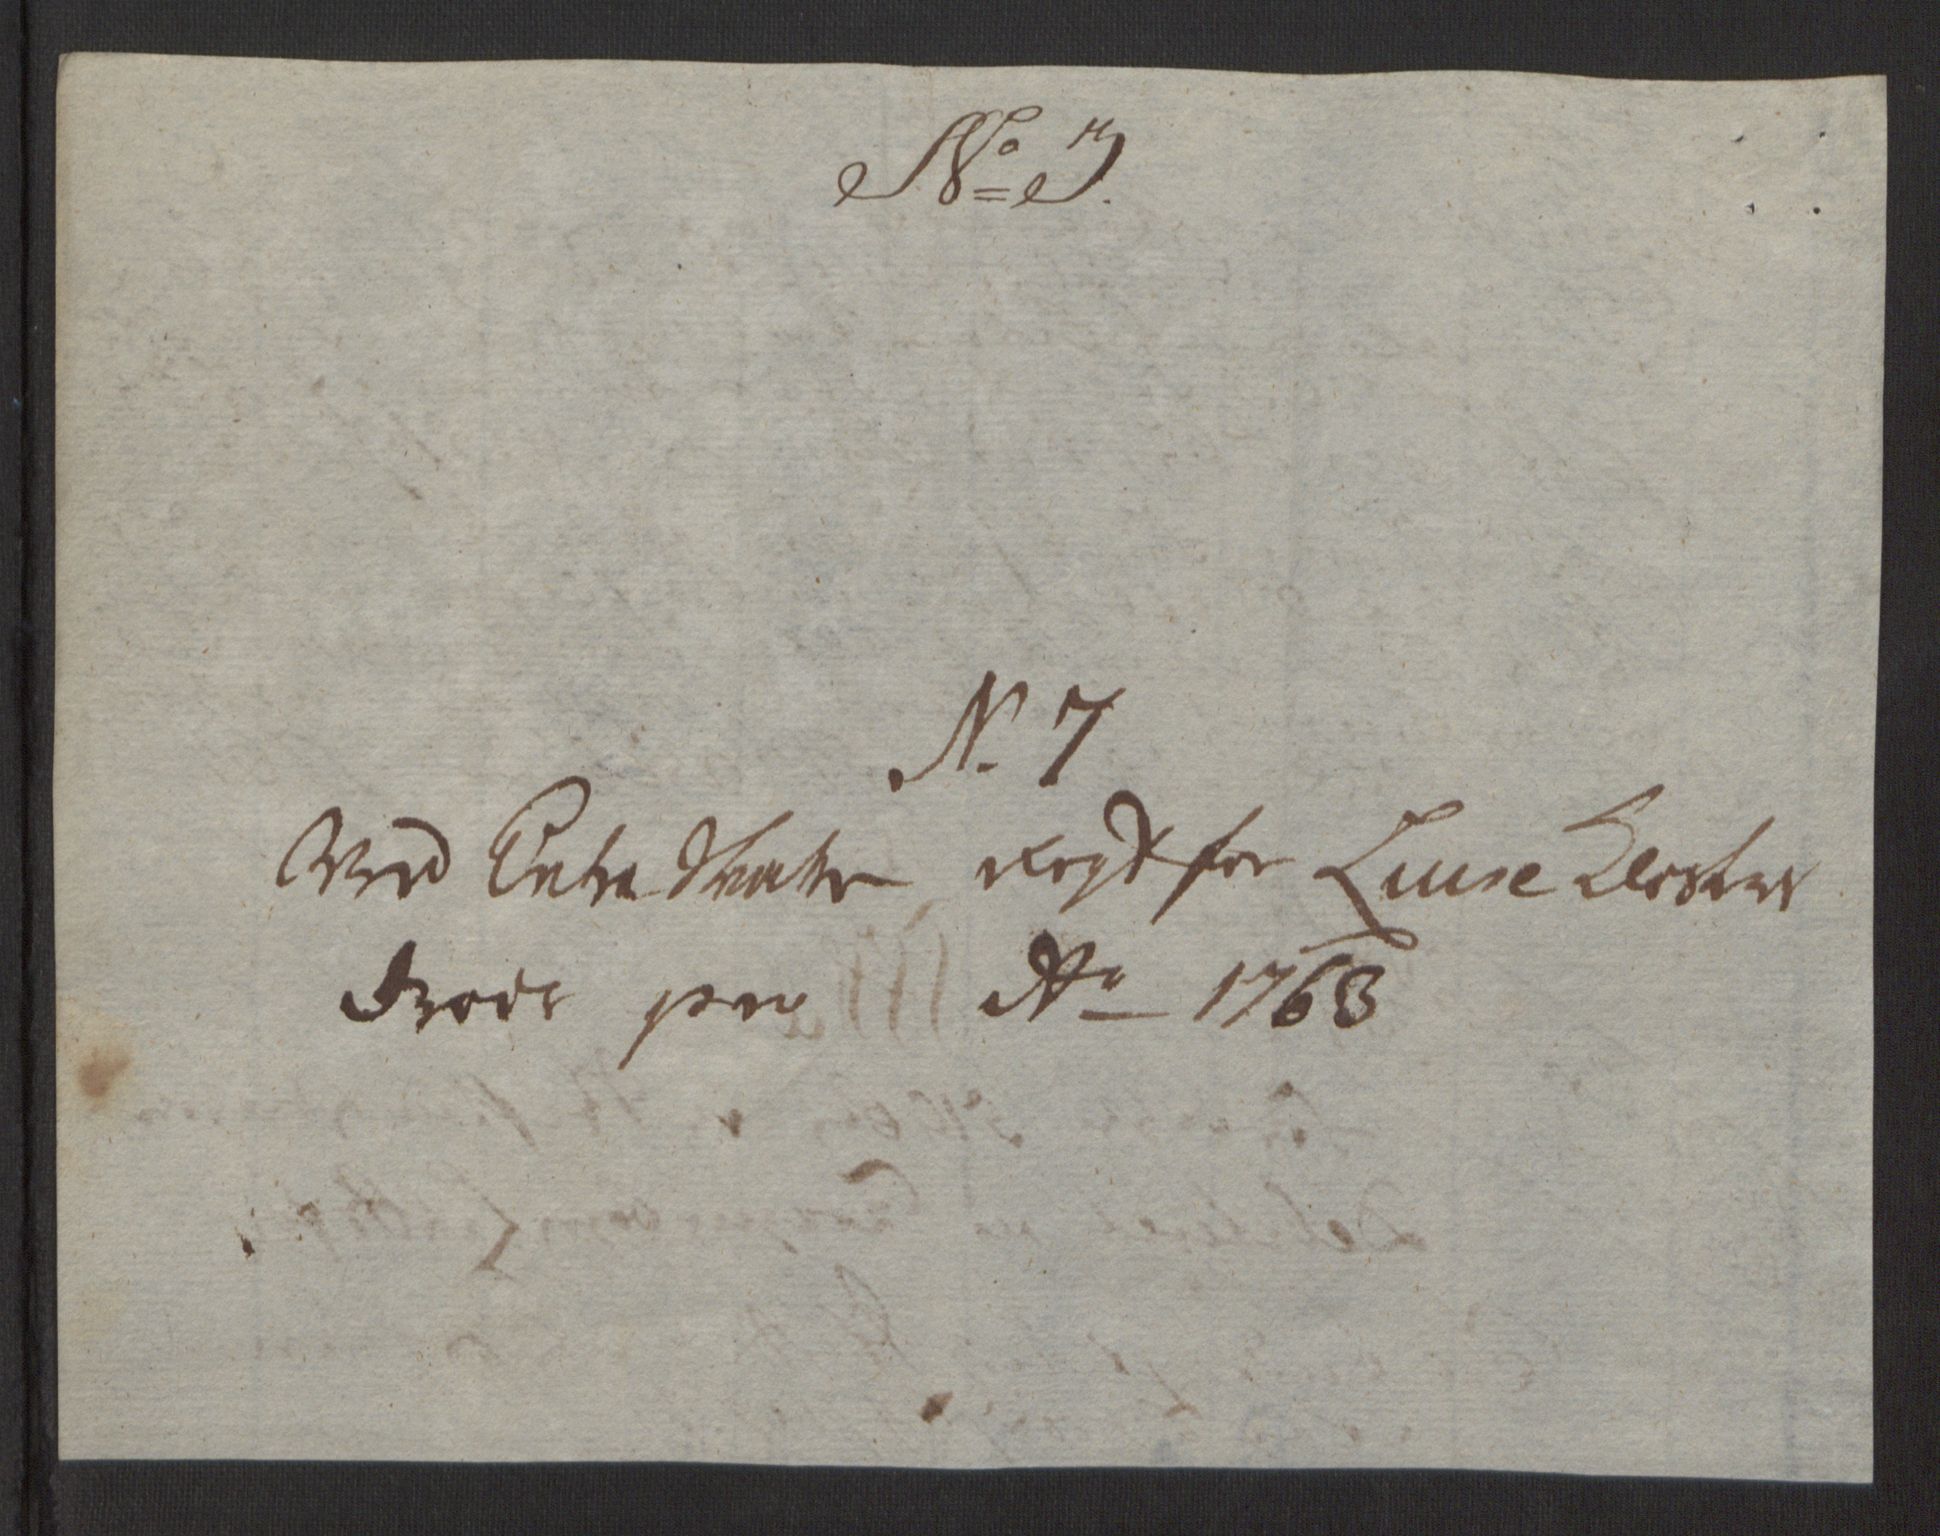 No 7.
N. 7
Ved Extra Skatte Regst for Lunse Closters
Gods pro Ao 1763